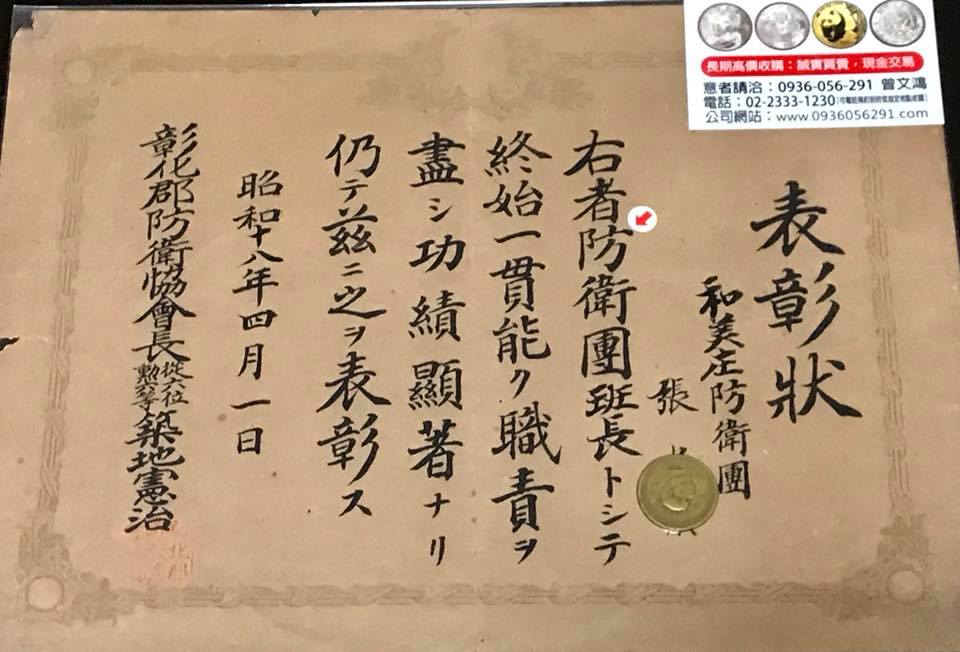 表彰狀
和美庄防衛團
張
右者防衛團班長トシテ
終始一貫能ク職責ヲ
盡シ功績顯著ナリ
仍テ茲ニ之ヲ表彰ス
昭和十八年四月一日
彰化郡防衛協會長 從六位 勲六等 築地憲治
長期高價收購：誠實買賣，現金交易
意者請洽：0936-056-291 曾文鴻
電話：02-2333-1230
公司網站：www.0936056291.com